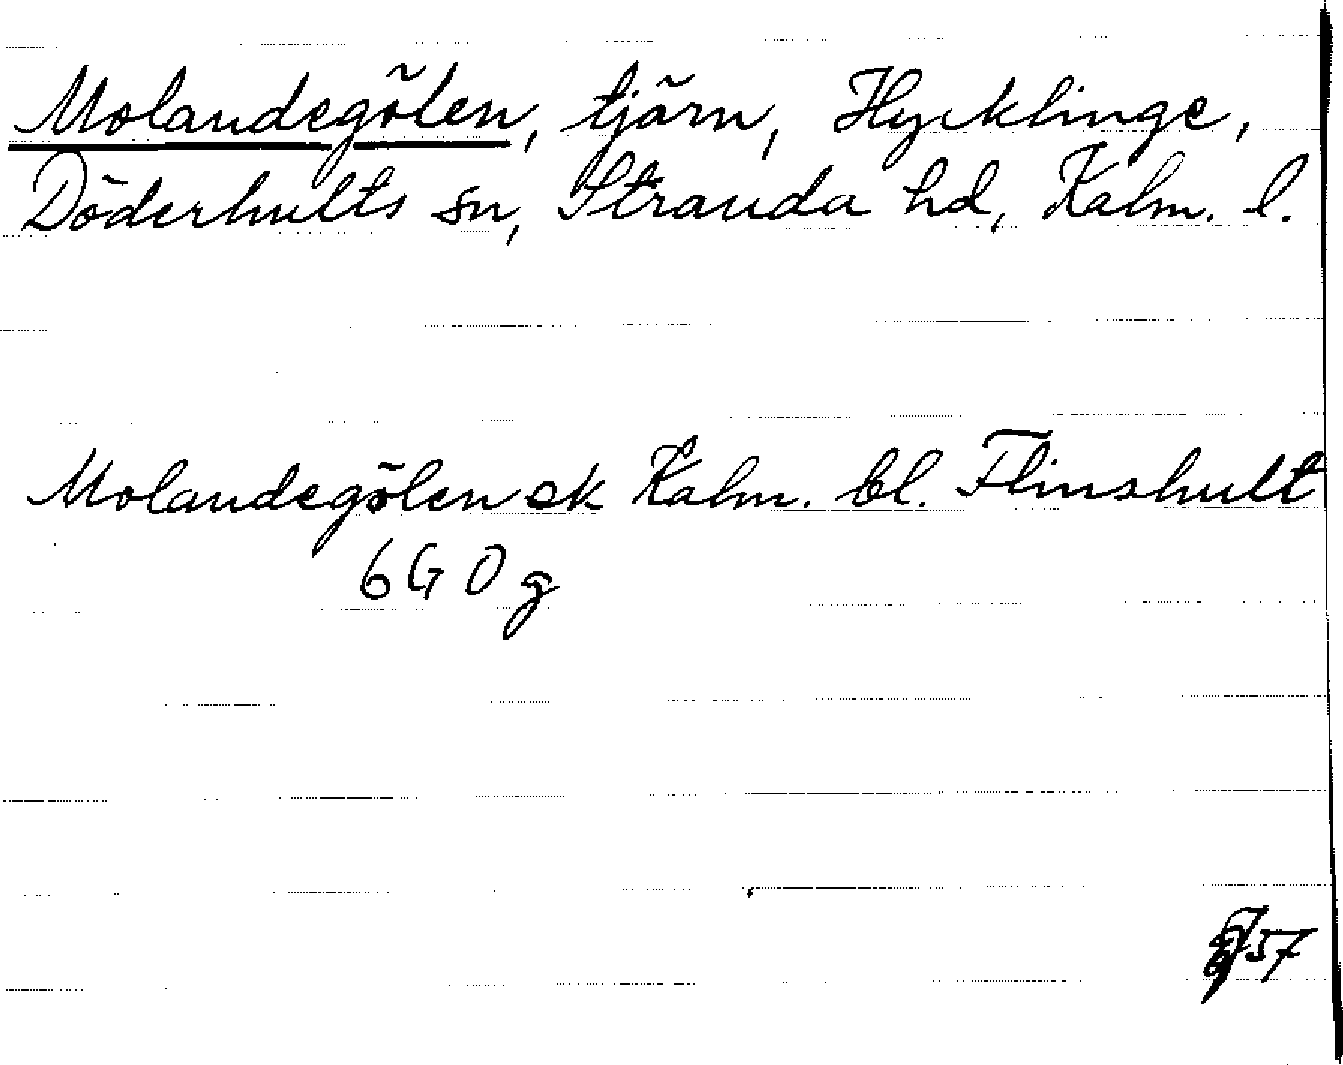 Molandegölen, tjärn, Hycklinge,
Döderhults sn, Stranda hd, Kalm. l.
Molandegölen ek Kalm. bl. Flinshult
6G 0g
57